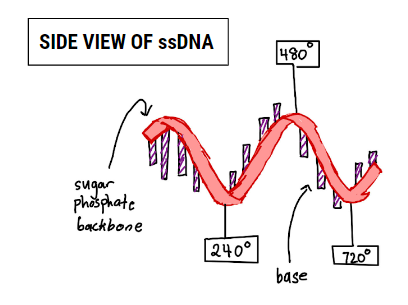 SIDE VIEW OF ssDNA
480°
sugar
phosphate
backbone
240°
base
720°